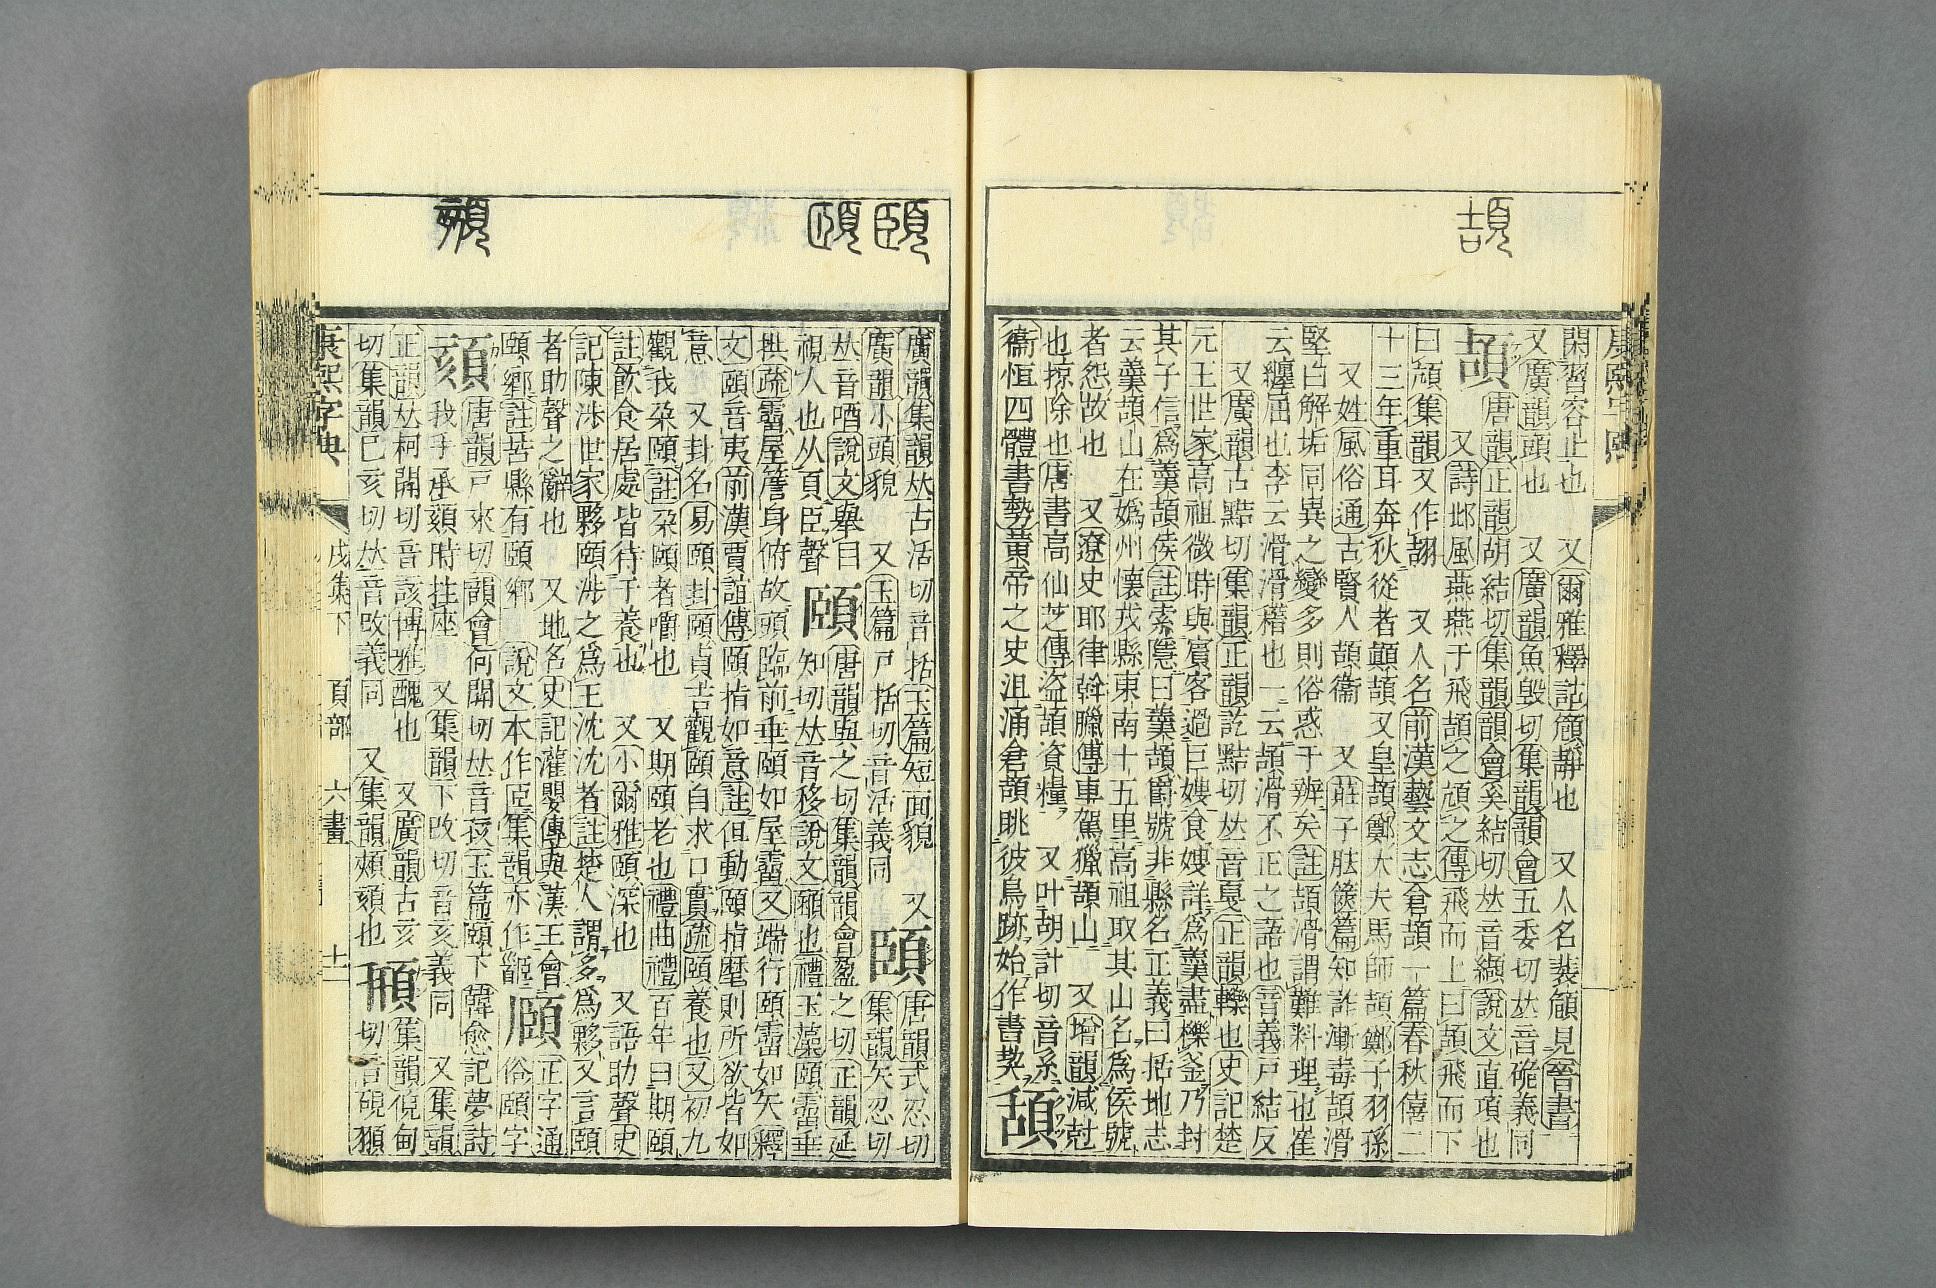 頡
康熙字典
閑習容止也　又爾雅釋詁頠靜也　又人名裴頠見晉書
又廣韻頭也　又廣韻魚毀切集韻韻會五委切𠀤音硊義同
頡
唐韻正韻胡結切集韻韻會奚結切𠀤音纈說文直項也
又詩邶風燕燕于飛頡之頏之傳飛而上曰頡飛而下
曰頏集韻又作䎔　又人名前漢藝文志倉頡一篇春秋僖二
十三年重耳奔狄從者顛頡又皇頡鄭大夫馬師頡鄭子羽孫
又姓風俗通古賢人頡衞　又莊子胠篋篇知詐漸毒頡滑
堅白解垢同異之變多則俗惑于辨矣註頡滑謂難料理也崔
云纏屈也李云滑滑稽也一云頡滑不正之語也音義戸結反
又廣韻古黠切集韻正韻訖黠切𠀤音戛正韻轢也史記楚
元王世家高祖微時與賓客過巨嫂食嫂詳爲羹盡櫟釜乃封
其子信爲羹頡侯註索隱曰羹頡爵號非縣名正義曰括地志
云羹頡山在嬀州懷戎縣東南十五里高祖取其山名爲侯號
者怨故也　又遼史耶律斡臘傳車駕獵頡山　又增韻減尅
也掠除也唐書高仙芝傳盜頡資糧　又叶胡計切音系
衞恆四體書勢黃帝之史沮涌倉頡眺彼鳥跡始作書契
頢
頤　頤　頫
廣韻集韻𠀤古活切音括玉篇短面貌　又
廣韻小頭貌　又玉篇戸括切音活義同
頣
唐韻式忍切
集韻矢忍切
𠀤音哂說文舉目
視人也从頁臣聲
頤
唐韻與之切集韻韻會盈之切正韻延
知切𠀤音移說文顄也禮玉藻頤霤垂
拱疏霤屋簷身俯故頭臨前垂頤如屋霤又端行頤霤如矢釋
文頤音夷前漢賈誼傳頤指如意註但動頤指麾則所欲皆如
意　又卦名易頤卦頤貞吉觀頤自求口實疏頤養也又初九
觀我朶頤註朶頤者嚼也　又期頤老也禮曲禮百年曰期頤
註飮食居處皆待于養也　又小爾雅頤深也　又語助聲史
記陳涉世家夥頤涉之爲王沈沈者註楚人謂多爲夥又言頤
者助聲之辭也　又地名史記灌嬰傳與漢王會
頤鄉註苦縣有頤鄉　說文本作𦣝集韻亦作
𩠡
正字通
俗頤字
頦
唐韻戸來切韻會何開切𠀤音孩玉篇頤下韓愈記夢詩
我手承頦肘拄座　又集韻下改切音亥義同　又集韻
正韻𠀤柯開切音該博雅醜也　又廣韻古亥
切集韻已亥切𠀤音改義同　又集韻頰頦也
䫓
集韻倪甸
切音硯顐
康熙字典　戌集下　頁部　六畫　十一